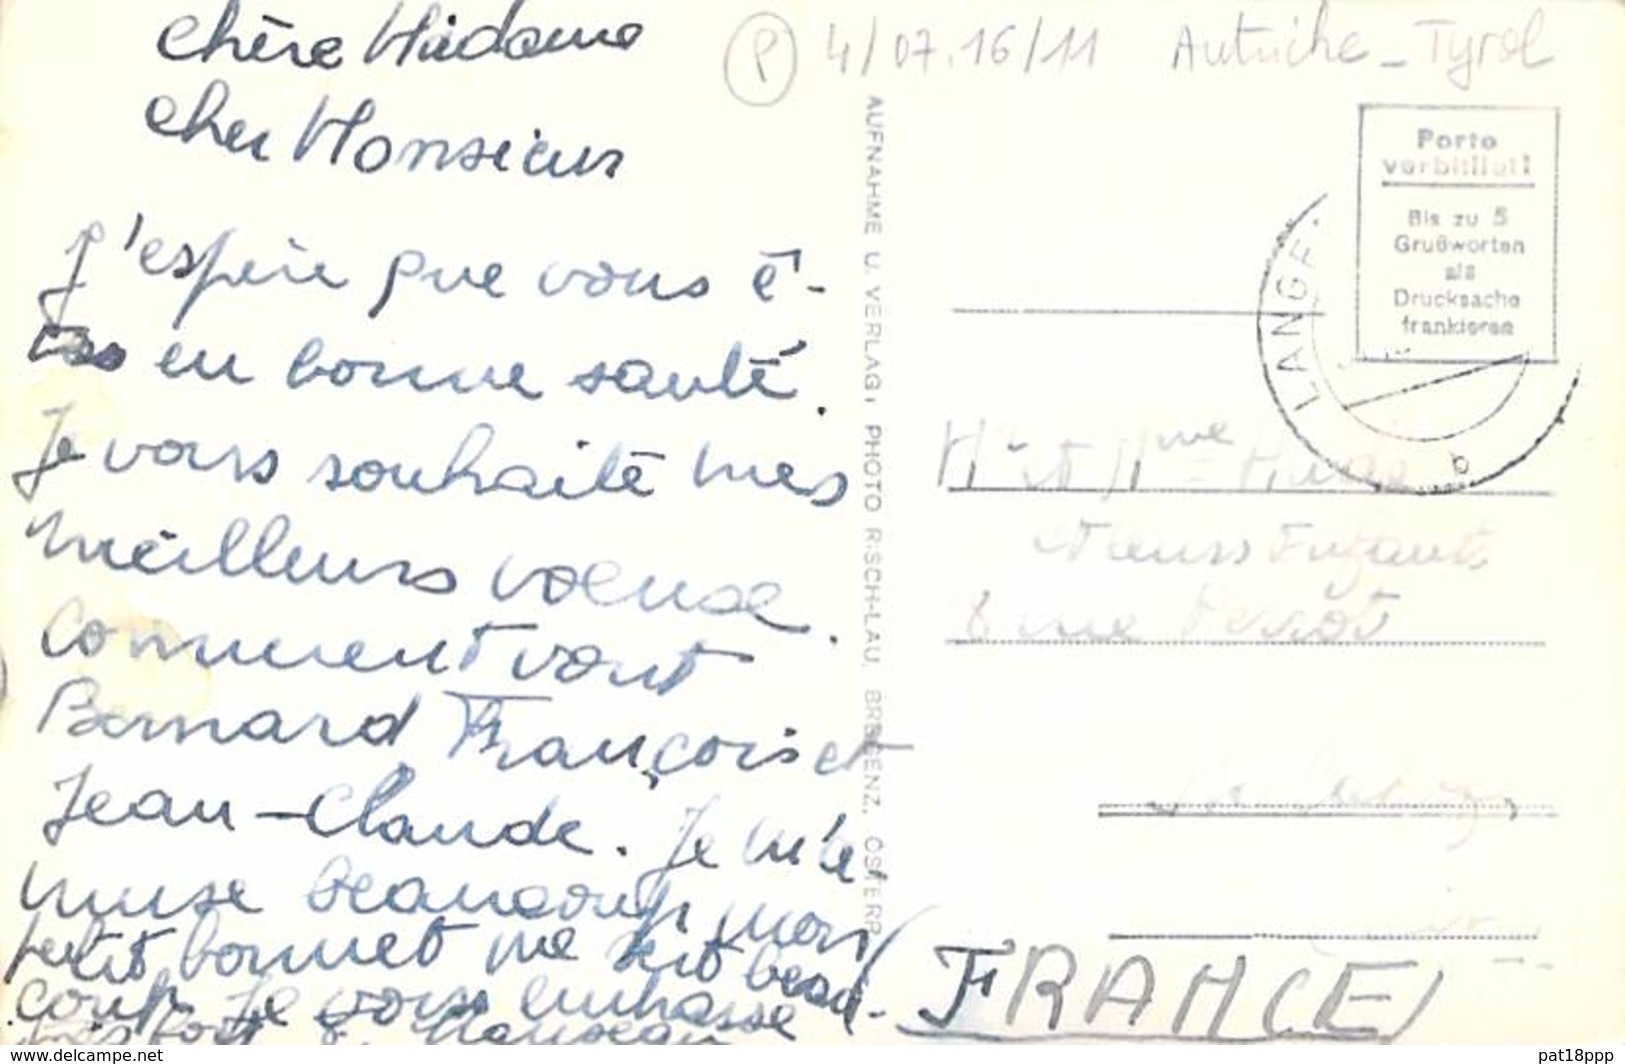 chère Madame
cher Monsieur
J'espère que vous ê-
tes en bonne santé.
Je vous souhaite mes
meilleurs voeux.
Comment vont
Bernard François et
Jean-Claude. Je m'a
muse beaucoup, mon
petit bonnet me sert beau-
coup. Je vous embrasse
très fort
P 4/07.16/11 Autriche - Tyrol
AUFNAHME U. VERLAG, PHOTO RISCH-LAU, BREGENZ, ÖSTERR.
Porto
verbilligt!
Bis zu 5
Grußworten
als
Drucksache
frankieren
LANGE
b
Mr et Mme
et leurs Enfants
8 rue Perrot
FRANCE
www.delcampe.net
pat18ppp